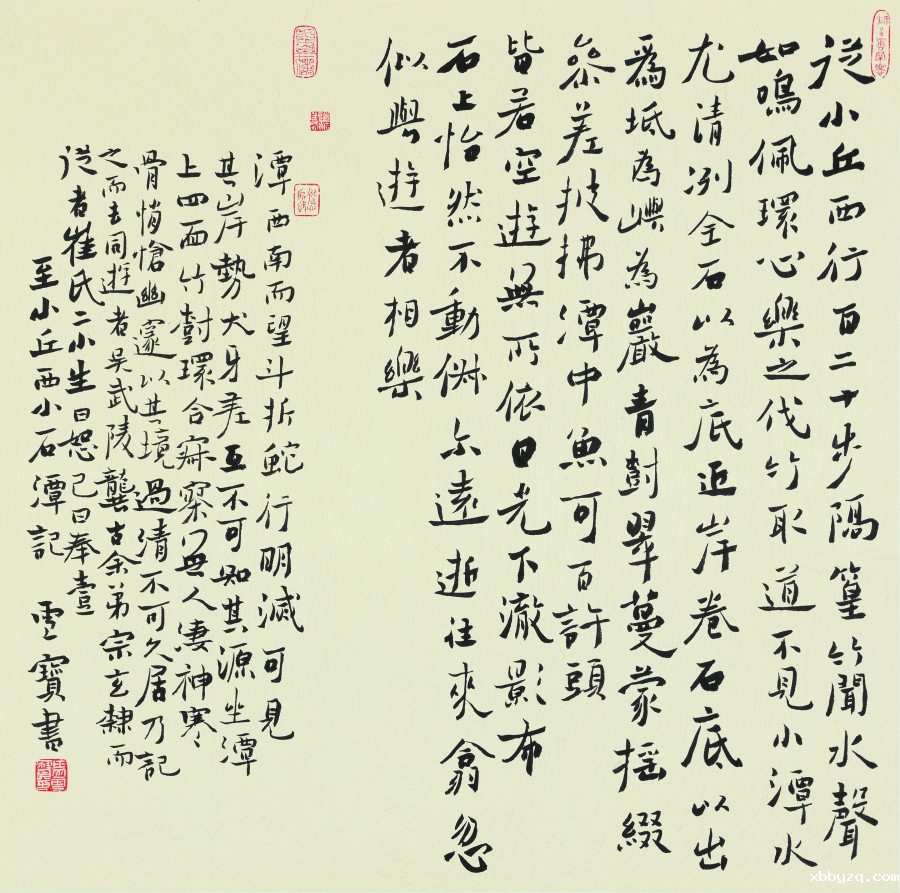 從小丘西行百二十步隔篁竹聞水聲
如鳴佩環心樂之伐竹取道不見小潭水
尤清冽全石以為底近岸卷石底以出
爲坻為嶼為巖青樹翠蔓蒙搖綴
參差披拂潭中魚可百許頭
皆若空遊無所依日光下澈影布
石上怡然不動俶尓遠逝往來翕忽
似與遊者相樂
潭西南而望斗折蛇行明滅可見
其岸勢犬牙差互不可知其源坐潭
上四面竹樹環合寂寥無人凄神寒
骨悄愴幽邃以其境過清不可久居乃記
之而去同遊者吳武陵龔古余弟宗玄隸而
從者崔氏二小生曰恕己曰奉壹
至小丘西小石潭記 雲寶書
xbbyzq.com